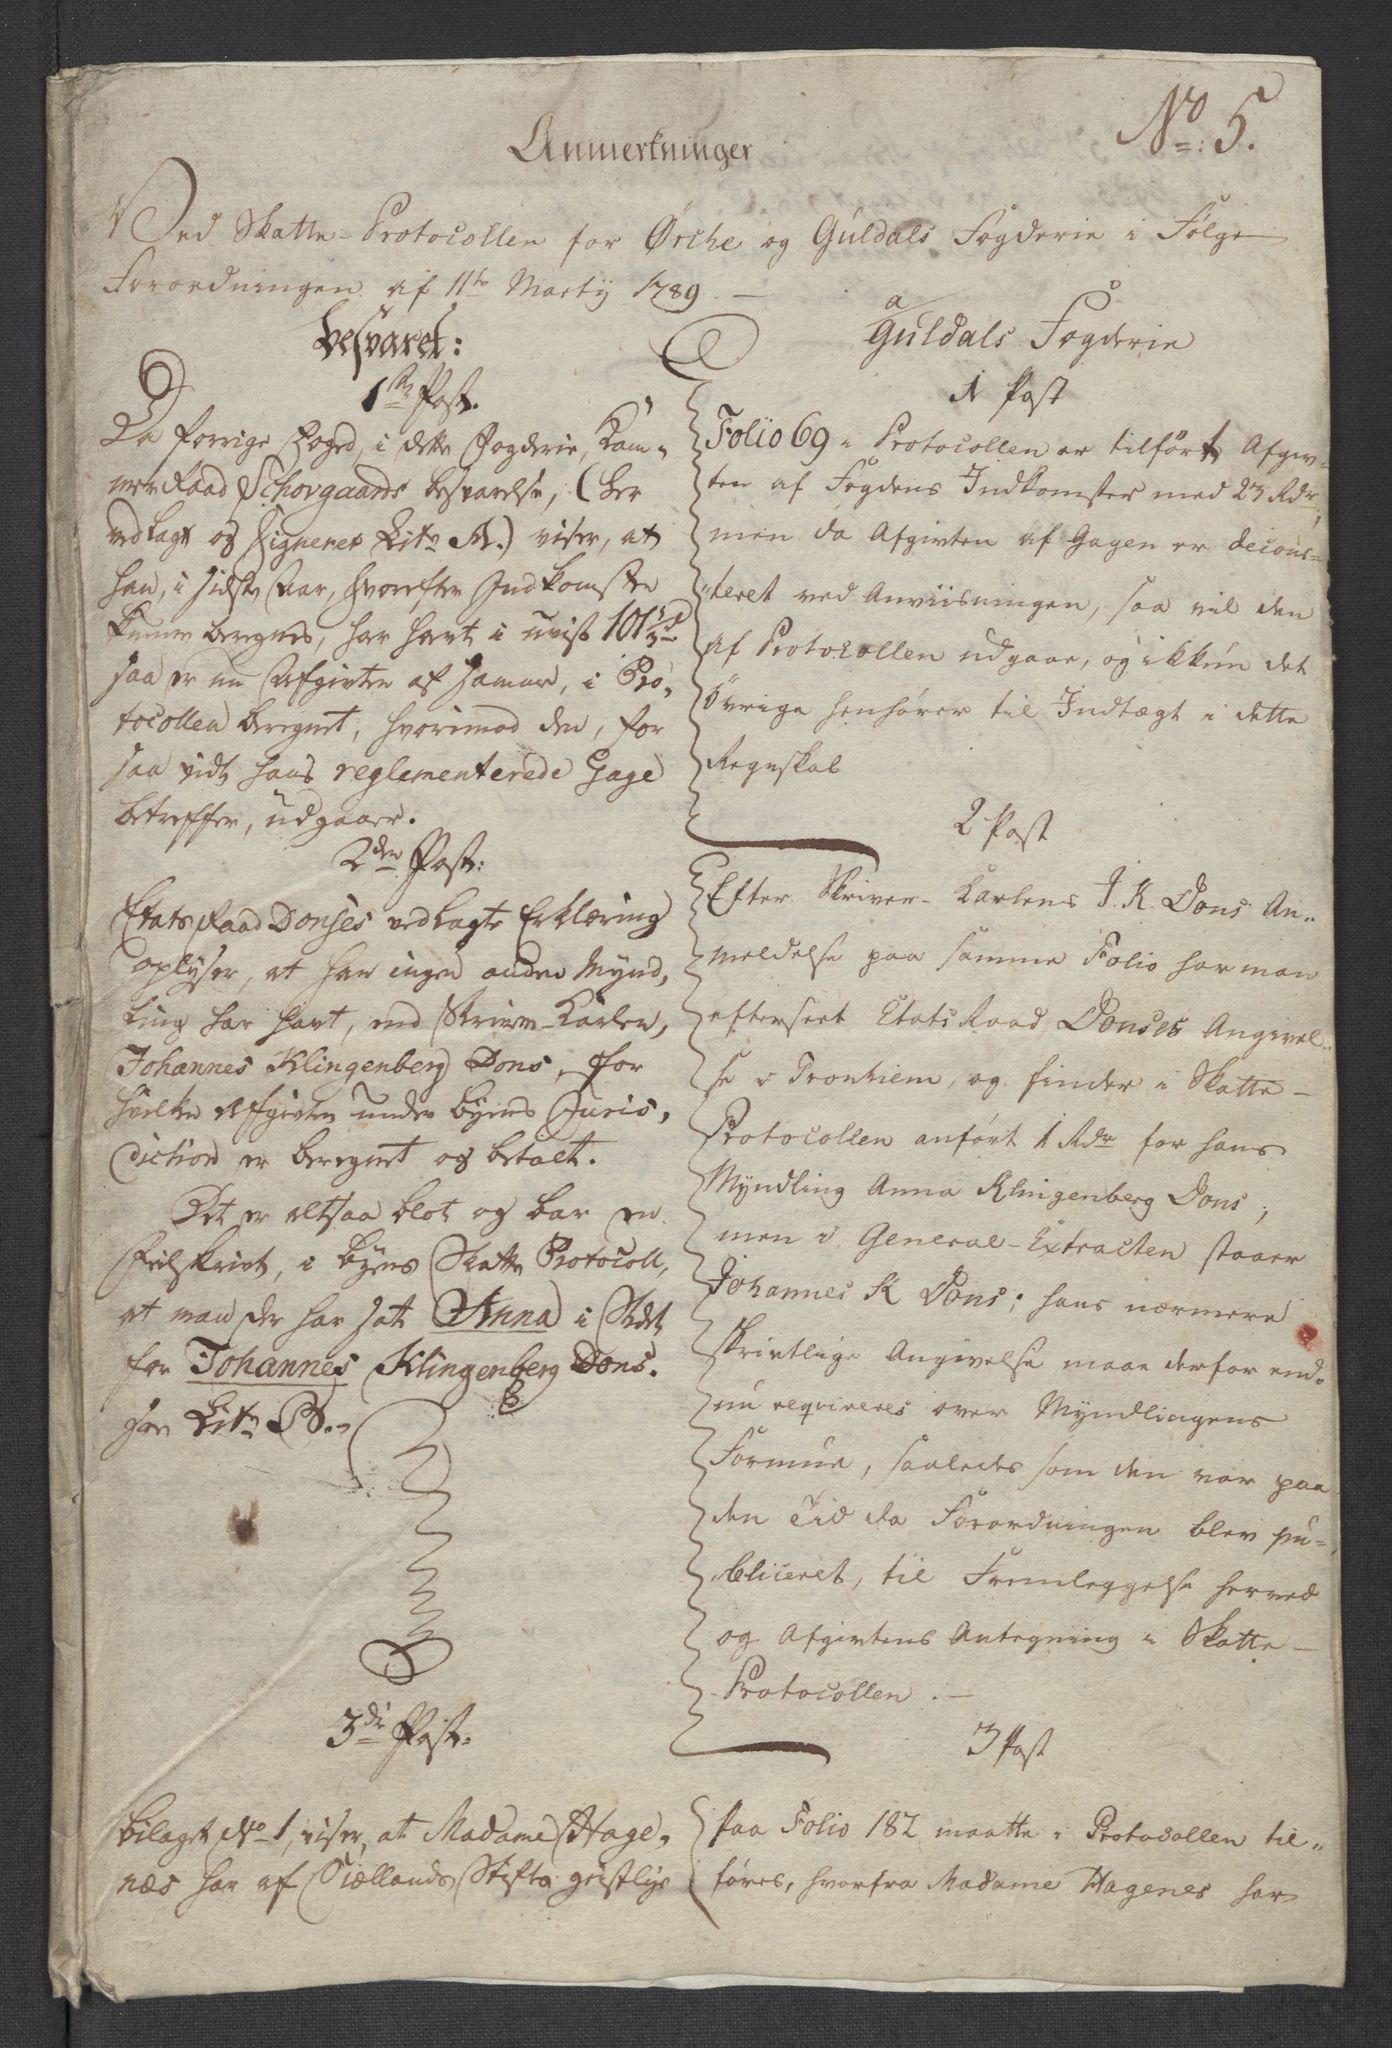 No: 5.
Anmerkninger
Ved Skatte-Protocollen for Ørche og Guldals Fogderie i Følge
Forordningen af 11te Martij 1789. —
Besvaret:
1ste Post.
Da forrige Foged, i dette Fogderie, Kam-
merRaad Schovgaards besvarelse, (her
vedlagt og Signeret Litr A.) viser, at
han, i sidste Aar, hvorefter Indkomsten
kunne beregnes, har havt i uvist 101
saa er nu Afgivten af samme, i Pro-
tocollen beregnet, hvorimod den, for
saa vidt hans reglementerede Gage
betreffer, udgaaer.
2den Post:
EtatsRaad Donses vedlagte Erklæring
oplyser, at han ingen anden Mynd-
ling har havt, end Skriver-Karlen,
Johannes Klingenberg Dons, for
hvilken Afgivten under byens Juris-
diction er beregnet og betalt.
Det er altsaa blot og bar en
Feilskrivt, i byens Skatte Protocoll,
at man der har sat Anna i Stedet
for Johannes Klingenberg Dons.
see Litr B.
3die Post.
bilaget No 1, viser, at Madame Hage-
næs har af Siællands Stifts geistlige
a
Guldals Fogderie
1 Post
Folio 69 i Protocollen er tilført Afgiv-
ten af Fogdens Indkomster med 23 Rdr,
men da Afgivten af Gagen er decour-
teret ved Anviisningen, saa vil den
af Protocollen udgaae, og ikkun det
övrige henhører til Indtægt i dette
Regnskab
2 Post
Efter Skriver-Karlens J. K. Dons An-
meldelse paa samme Folio har man
efterseet EtatsRaad Donses Angivel-
se i Tronhiem, og finder i Skatte-
Protocollen anført 1 Rdr for hans
Myndling Anna Klingenberg Dons,
men i General-Extracten staaer
Johannes K Dons; hans nærmere
skrivtlige Angivelse maae derfor end-
nu reqvireres over Myndlingens
Formue, saaledes som den var paa
den Tid da Forordningen blev pu-
bliceret, til Fremleggelse herved
og Afgivtens Antegning i Skatte-
Protocollen. —
3 Post
Paa Folio 182 maatte i Protocollen til-
føres, hvorfra Madame Hagenes har